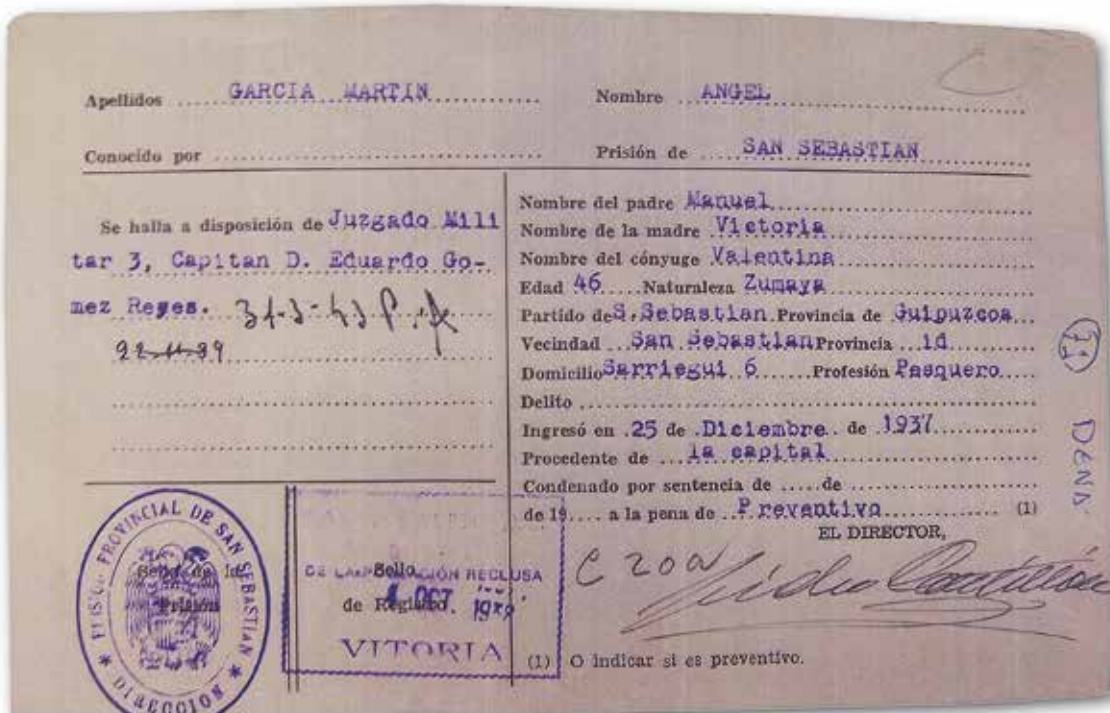 Apellidos GARCIA MARTIN Nombre ANGEL
Conocido por Prisión de SAN SEBASTIAN
Se halla a disposición de Juzgado Mili
tar 3, Capitan D. Eduardo Go-
mez Reyes. 31-3-43 P.A
22-11-39
Nombre del padre Manuel
Nombre de la madre Victoria
Nombre del cónyuge Valentina
Edad 46 Naturaleza Zumaya
Partido de S.Sebastian Provincia de Guipuzcoa
Vecindad San Sebastian Provincia id
Domicilio Sarriegui 6 Profesión Pasquero
Delito
Ingresó en 25 de Diciembre de 1937
Procedente de la capital
Condenado por sentencia de de
de 19 a la pena de Preventivo (1)
EL DIRECTOR,
DENA
PROVINCIAL DE SAN SEBASTIAN
Sello de la
Prisión
DIRECCION
Sello
RECLUSA
de Registro
OCT
VITORIA
C 20
(1) O indicar si es preventivo.